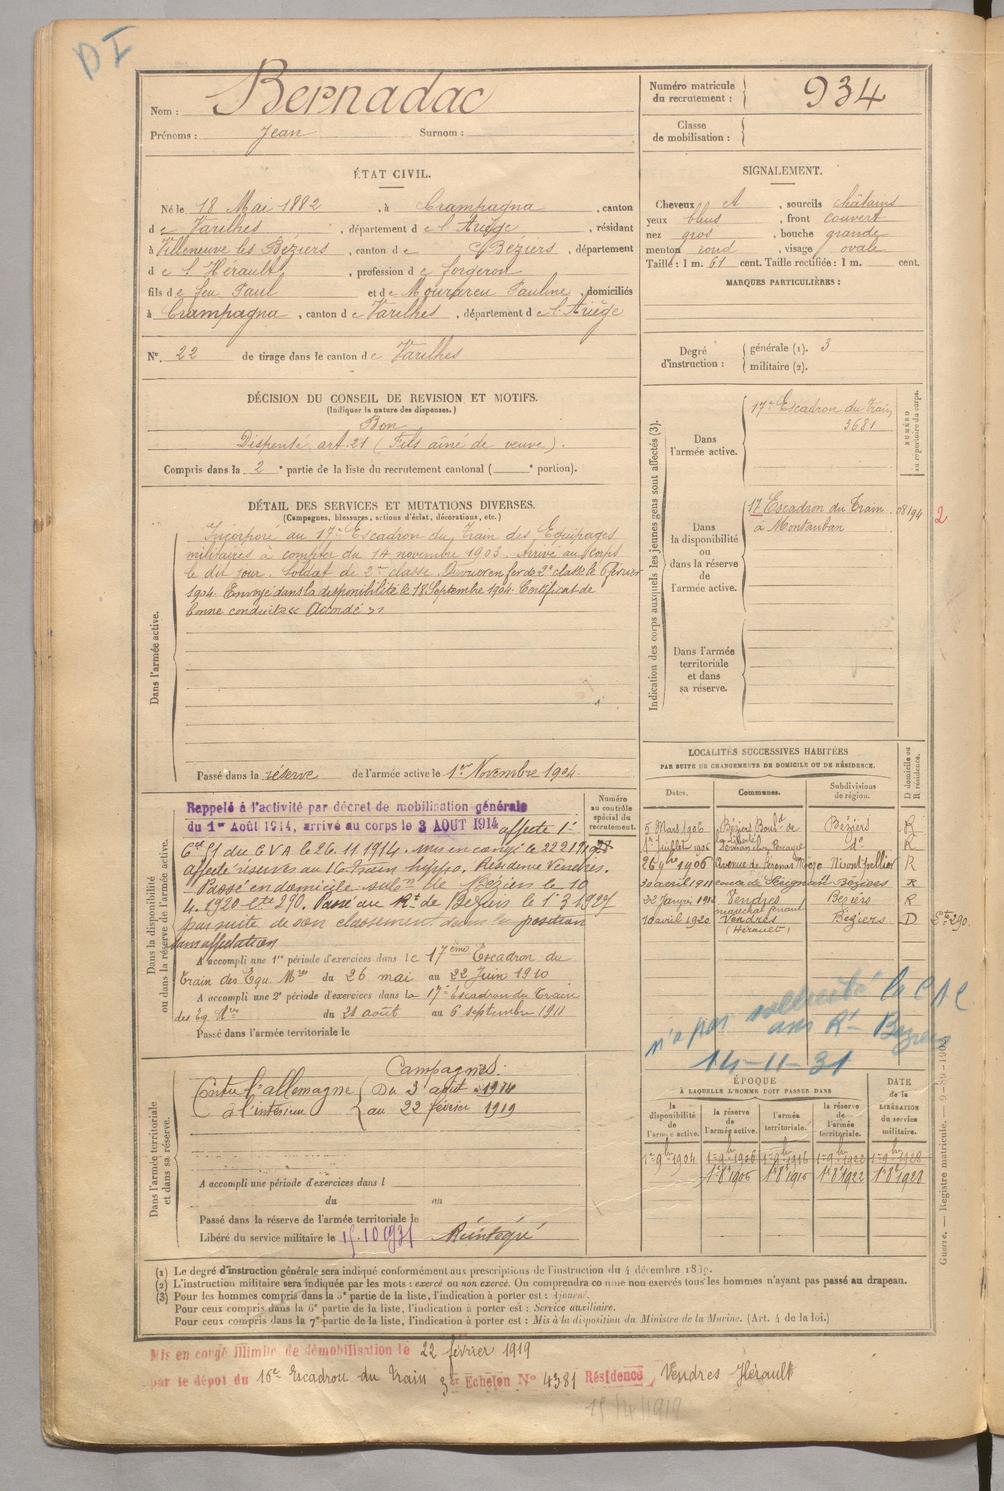 DI
Nom : Bernadac
Prénoms : Jean Surnom :
Numéro matricule du recrutement : 934
Classe de mobilisation :
ÉTAT CIVIL.
Né le 18 Mai 1882, à Crampagna, canton
de Varilhes, département de l'Ariège, résidant
à Villeneuve les Béziers, canton de Béziers, département
de l'Hérault, profession de forgeron
fils de feu Paul et de Pauline, domiciliés
à Crampagna, canton de Varilhes, département de l'Ariège
N°. 22 de tirage dans le canton de Varilhes
SIGNALEMENT.
Cheveux A, sourcils châtains
yeux bleus, front couvert
nez gros, bouche grande
menton rond, visage ovale
Taille : 1 m. 61 cent. Taille rectifiée : 1 m. cent.
MARQUES PARTICULIÈRES :
Degré d'instruction : générale (1). 3
militaire (2).
DÉCISION DU CONSEIL DE REVISION ET MOTIFS.
(Indiquer la nature des dispenses.)
Bon
Dispensé art. 21 (Fils aîné de veuve).
Compris dans la 2e partie de la liste du recrutement cantonal ( e portion).
DÉTAIL DES SERVICES ET MUTATIONS DIVERSES.
(Campagnes, blessures, actions d'éclat, décorations, etc.)
Dans l'armée active.
Incorporé au 17e Escadron du Train des Équipages
militaires à compter du 14 novembre 1903. Arrivé au Corps
le dit jour. Soldat de 2me classe. Ouvrier en fer de 2e classe le février
1904. Envoyé dans la disponibilité le 18 Septembre 1904. Certificat de
bonne conduite « Accordé »
Passé dans la réserve de l'armée active le 1er Novembre 1904.
Indication des corps auxquels les jeunes gens sont affectés (3).
NUMÉRO au répertoire du corps.
Dans l'armée active.
17e Escadron du Train
3681
Dans la disponibilité ou dans la réserve de l'armée active.
17 Escadron du Train
à Montauban
08194
2
Dans l'armée territoriale et dans sa réserve.
Dans la disponibilité ou dans la réserve de l'armée active.
Numéro au contrôle spécial du recrutement.
Rappelé à l'activité par décret de mobilisation générale
du 1er Août 1914, arrivé au corps le 3 AOUT 1914 affecté
du C V A le 26.11.1914. mis en congé le 22 2 19
affecté réserve au 16 Train hippo. Résidence Vendres.
Passé en domicile de Béziers le 10
4.1920 Lte 290. Passé au Rt de Béziers le 1.3.1927
par suite de son classement dans la position
sans affectation
A accompli une 1re période d'exercices dans le 17ème Escadron du
Train des Equ. Mres du 26 mai au 22 Juin 1910
A accompli une 2e période d'exercices dans la 17e Escadron du Train
des Eq. du 21 août au 6 septembre 1911
Passé dans l'armée territoriale le
LOCALITÉS SUCCESSIVES HABITÉES
PAR SUITE DE CHANGEMENTS DE DOMICILE OU DE RÉSIDENCE.
Dates. Communes. Subdivisions de région. D domicile ou R résidence.
5 Mars 1906 Béziers Boul.d de la Béziers R
Juillet 1906 do R
26 9bre 1906 Montpellier R
30 avril 1911 Béziers R
22 Janvier 1912 Vendres Béziers R
10 avril 1920 Vendres (Hérault) Béziers D Lte 290.
n'a pas sollicité la C A C
Rt Béziers
14-11-31
Dans l'armée territoriale et dans sa réserve.
Campagnes :
Contre l'allemagne Du 3 août 1914
à l'intérieur au 22 février 1919
A accompli une période d'exercices dans l
du au
Passé dans la réserve de l'armée territoriale le
Libéré du service militaire le 15.10.1931 Réintégré
ÉPOQUE
À LAQUELLE L'HOMME DOIT PASSER DANS
DATE de la LIBÉRATION du service militaire.
la disponibilité de l'armée active. la réserve de l'armée active. l'armée territoriale. la réserve de l'armée territoriale.
1er 9bre 1904 1er 9bre 1906 1er 9bre 1916 1er 9bre 1922 1er 9bre 1928
1er 8 1906 1er 8 1916 1er 8 1922 1er 8 1928
Guerre. — Registre matricule.
(1) Le degré d'instruction générale sera indiqué conformément aux prescriptions de l'instruction du 4 décembre 1889.
(2) L'instruction militaire sera indiquée par les mots : exercé ou non exercé. On comprendra comme non exercés tous les hommes n'ayant pas passé au drapeau.
(3) Pour les hommes compris dans la 5e partie de la liste, l'indication à porter est : Ajourné.
Pour ceux compris dans la 6e partie de la liste, l'indication à porter est : Service auxiliaire.
Pour ceux compris dans la 7e partie de la liste, l'indication à porter est : Mis à la disposition du Ministre de la Marine. (Art. 4 de la loi.)
Mis en congé illimité de démobilisation le 22 février 1919
par le dépôt du 16e Escadron du Train 3e Echelon N° 4381 Résidence Vendres Hérault
15/4/1919